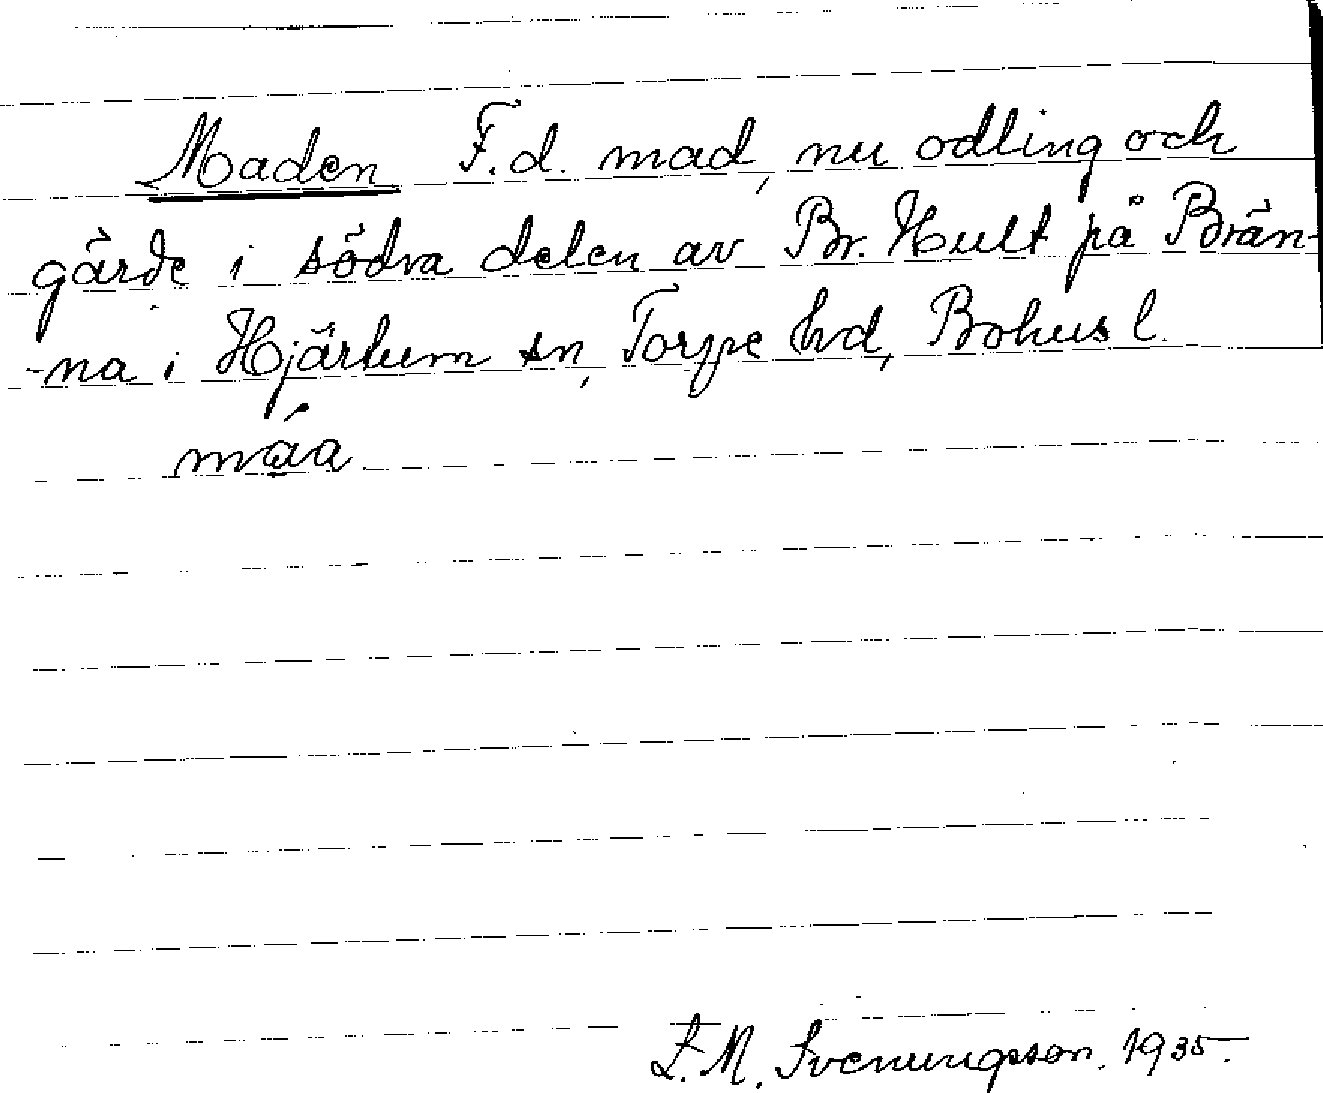 Maden F.d. mad, nu odling och
gärde i södra delen av Br. Hult på Brän-
-na i Hjärtum sn, Torpe hd, Bohus l.
máa
L. M. Svenungsson. 1935.